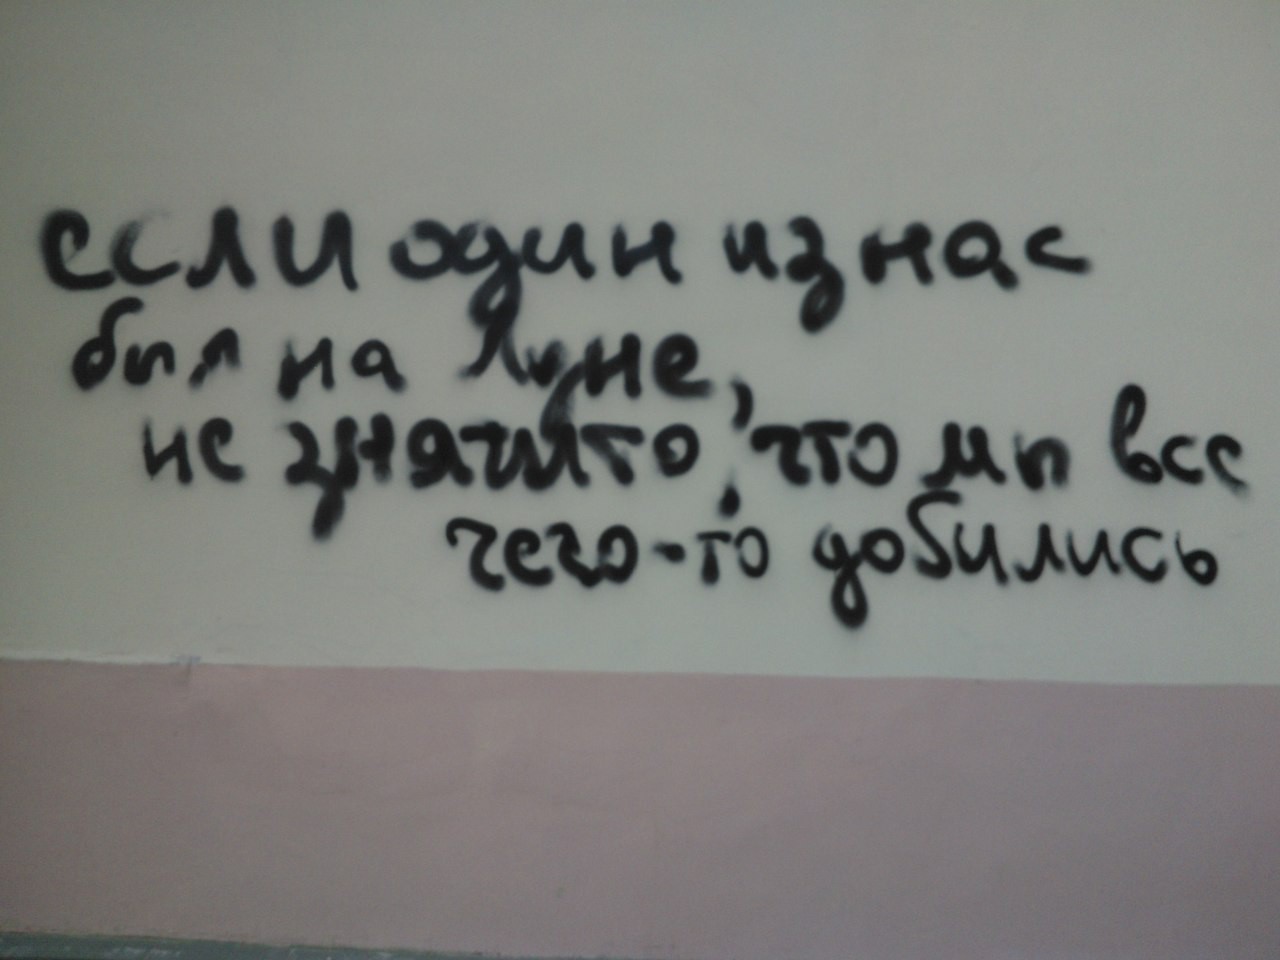 если один из нас
был на Луне,
не значит то, что мы все
чего-то добились